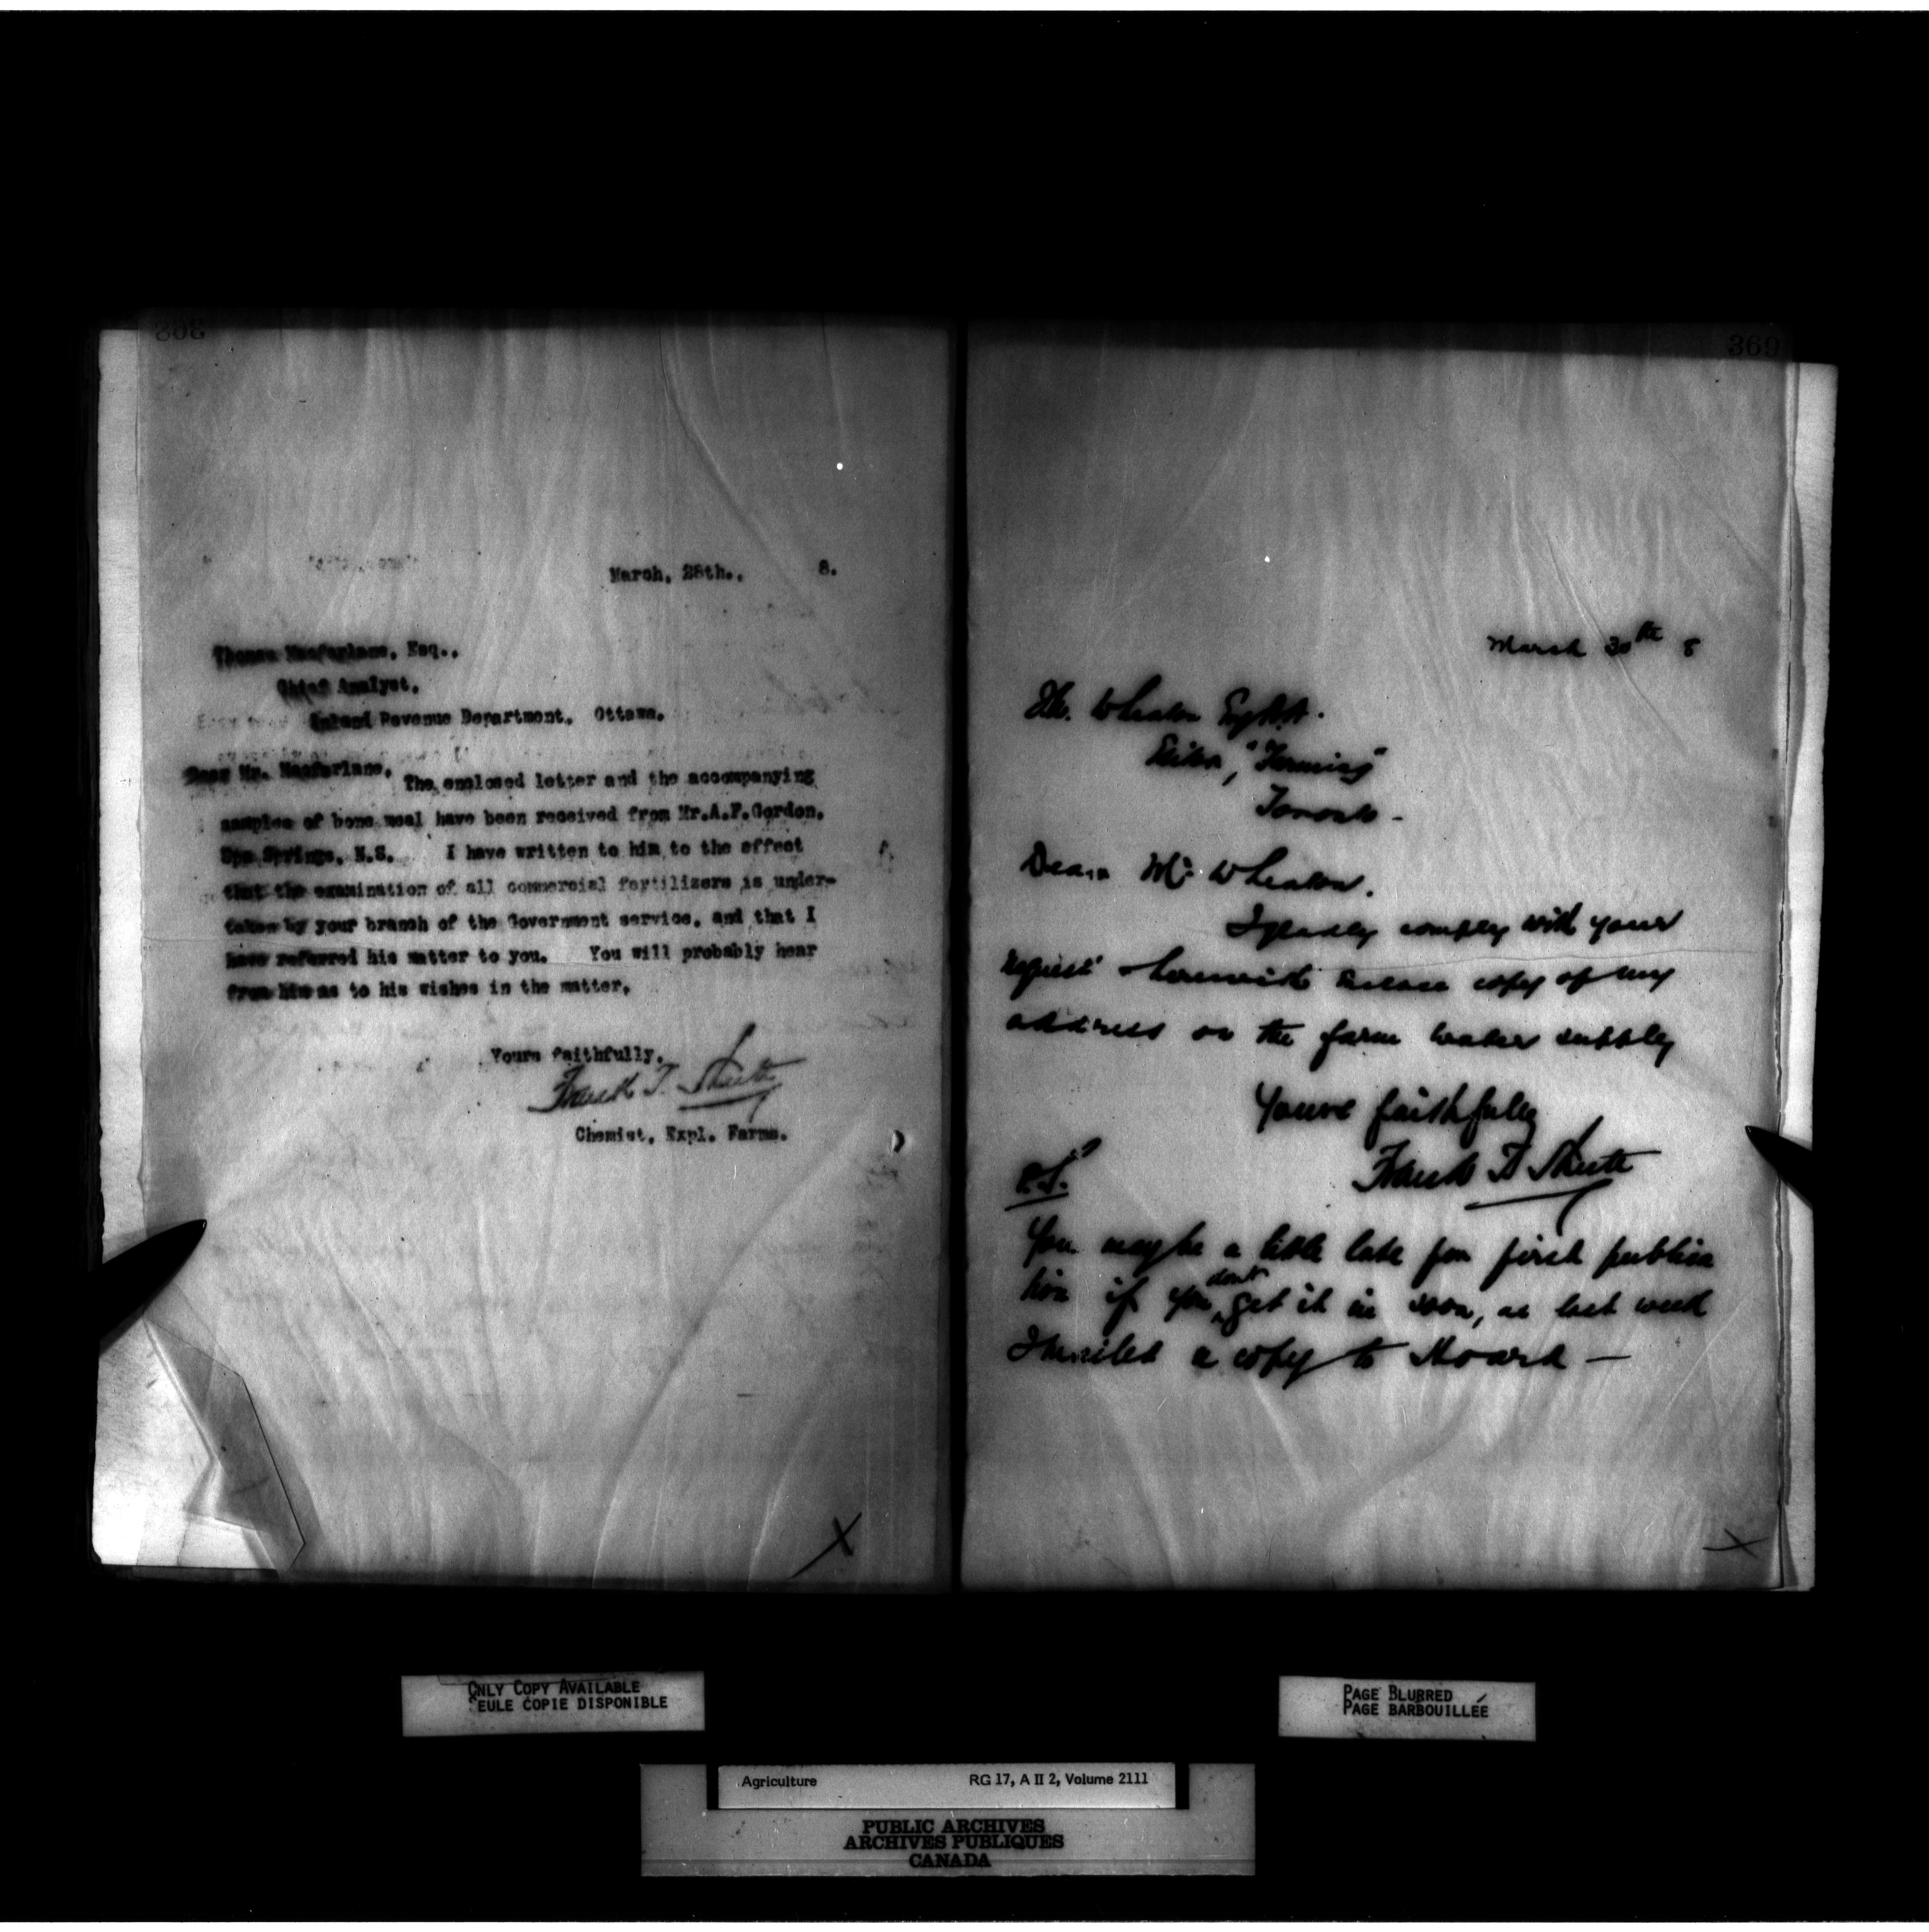 368
March, 28th., 8.
Thomas Macfarlane, Esq.,
Chief Analyst,
Inland Revenue Department, Ottawa.
Dear Mr. Macfarlane,
The enclosed letter and the accompanying
samples of bone meal have been received from Mr.A.F.Gordon,
Spa Springs, N.S. I have written to him to the effect
that the examination of all commercial fertilizers is under-
taken by your branch of the Government service, and that I
have referred his matter to you. You will probably hear
from him as to his wishes in the matter.
Yours faithfully,
Frank T. Shutt
Chemist, Expl. Farms.
369
March 30th 8
Wheaton
Editor, "Farming"
Toronto -
Dear Mr Wheaton.
I gladly comply with your
request & herewith enclose copy of my
address on the farm water supply
Yours faithfully
Frank T Shutt
P.S.
You may be a little late for first publica
tion if you don't get it in soon, as last week
I mailed a copy to Hoard -
ONLY COPY AVAILABLE
SEULE COPIE DISPONIBLE
PAGE BLURRED
PAGE BARBOUILLÉE
Agriculture RG 17, A II 2, Volume 2111
PUBLIC ARCHIVES
ARCHIVES PUBLIQUES
CANADA